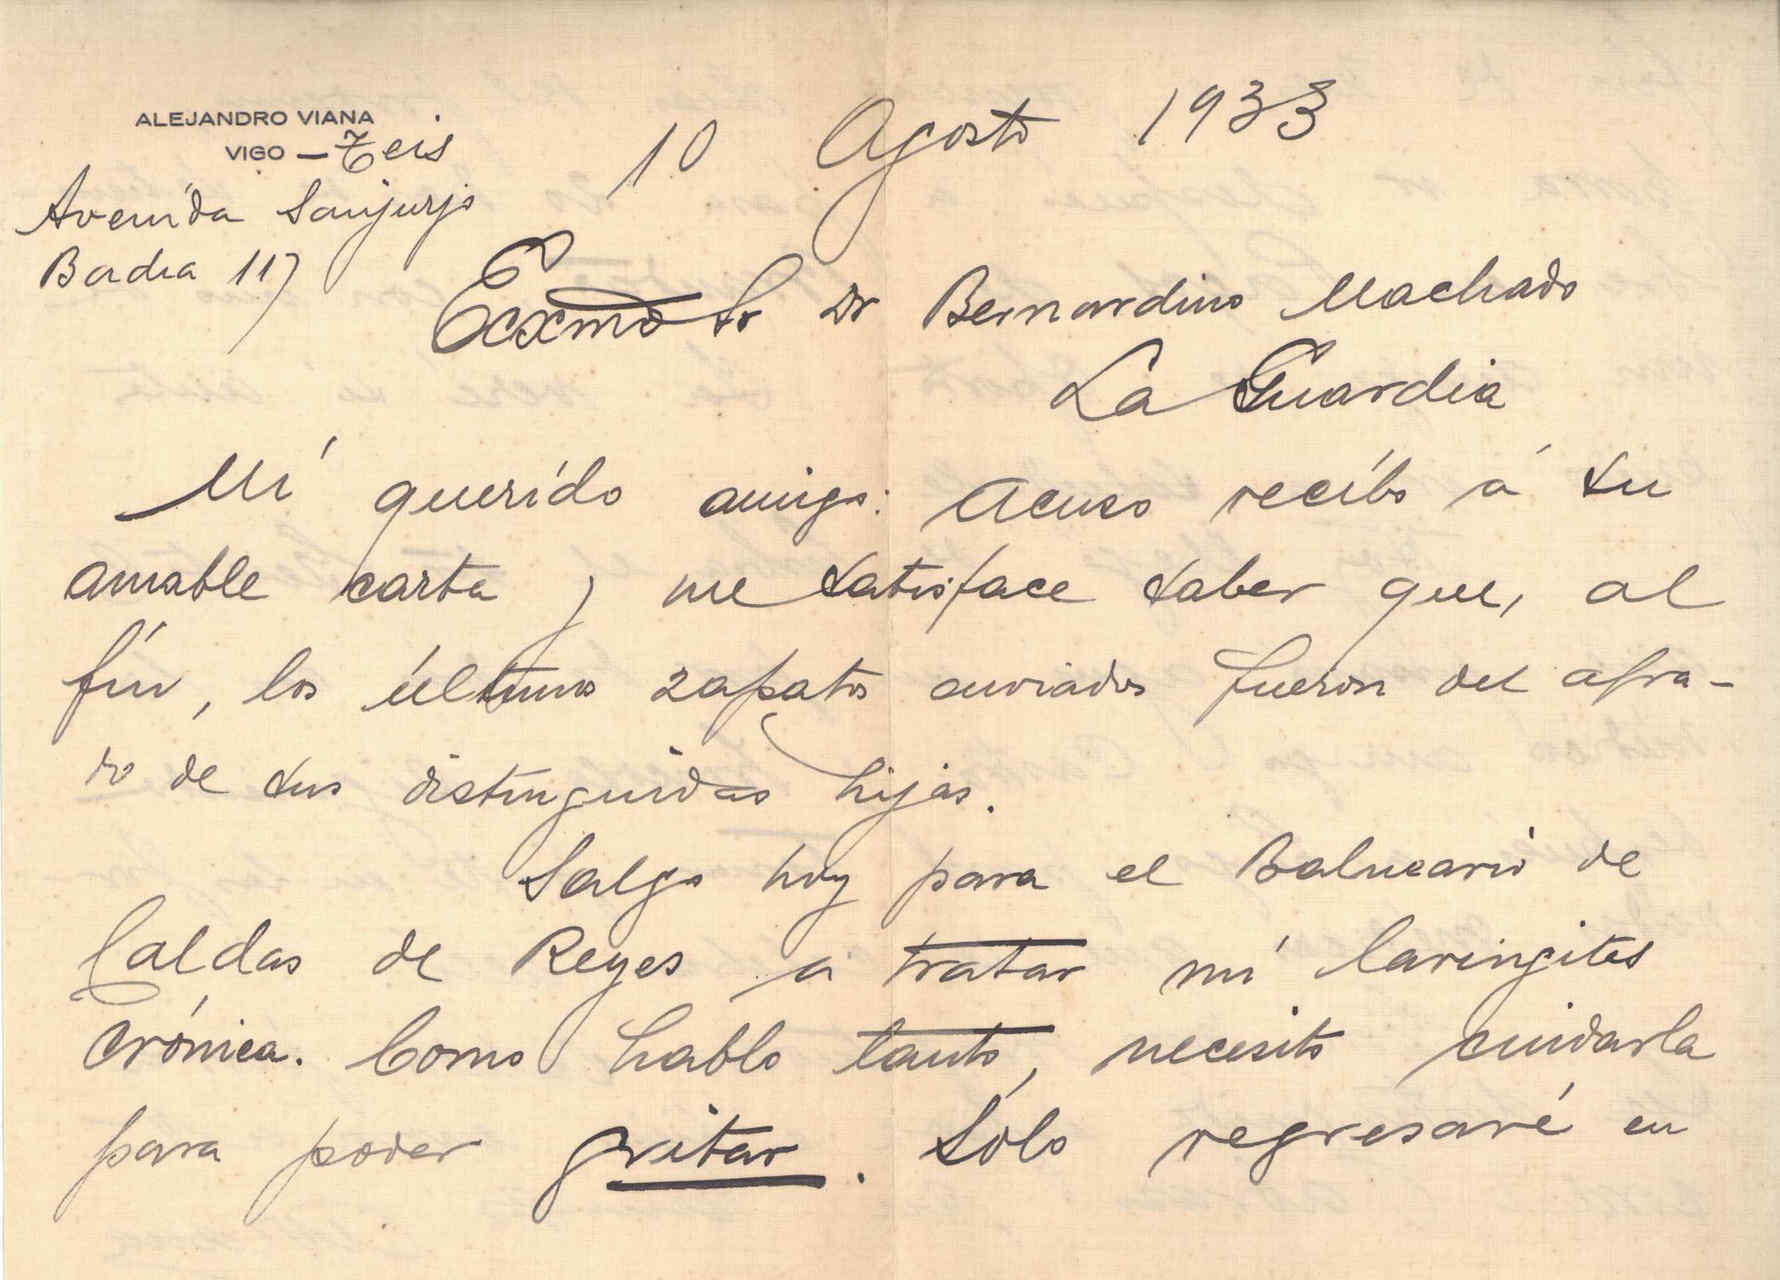 ALEJANDRO VIANA
VIGO — Teis
Avenida Sanjurjo
Badia 117
10 Agosto 1933
Excmo Sr Dr Bernardino Machado
La Guardia
Mí querído amigo: Acuso recíbo á su
amable carta y me satisface saber que, al
fín, los últimos zapatos enviados fueron del agra-
do de sus distinguidas hijas.
Salgo hoy para el Balneario de
Caldas de Reyes a tratar mí laringites
crónica. Como hablo tanto, necesito cuidarla
para poder gritar. Sólo regresaré en